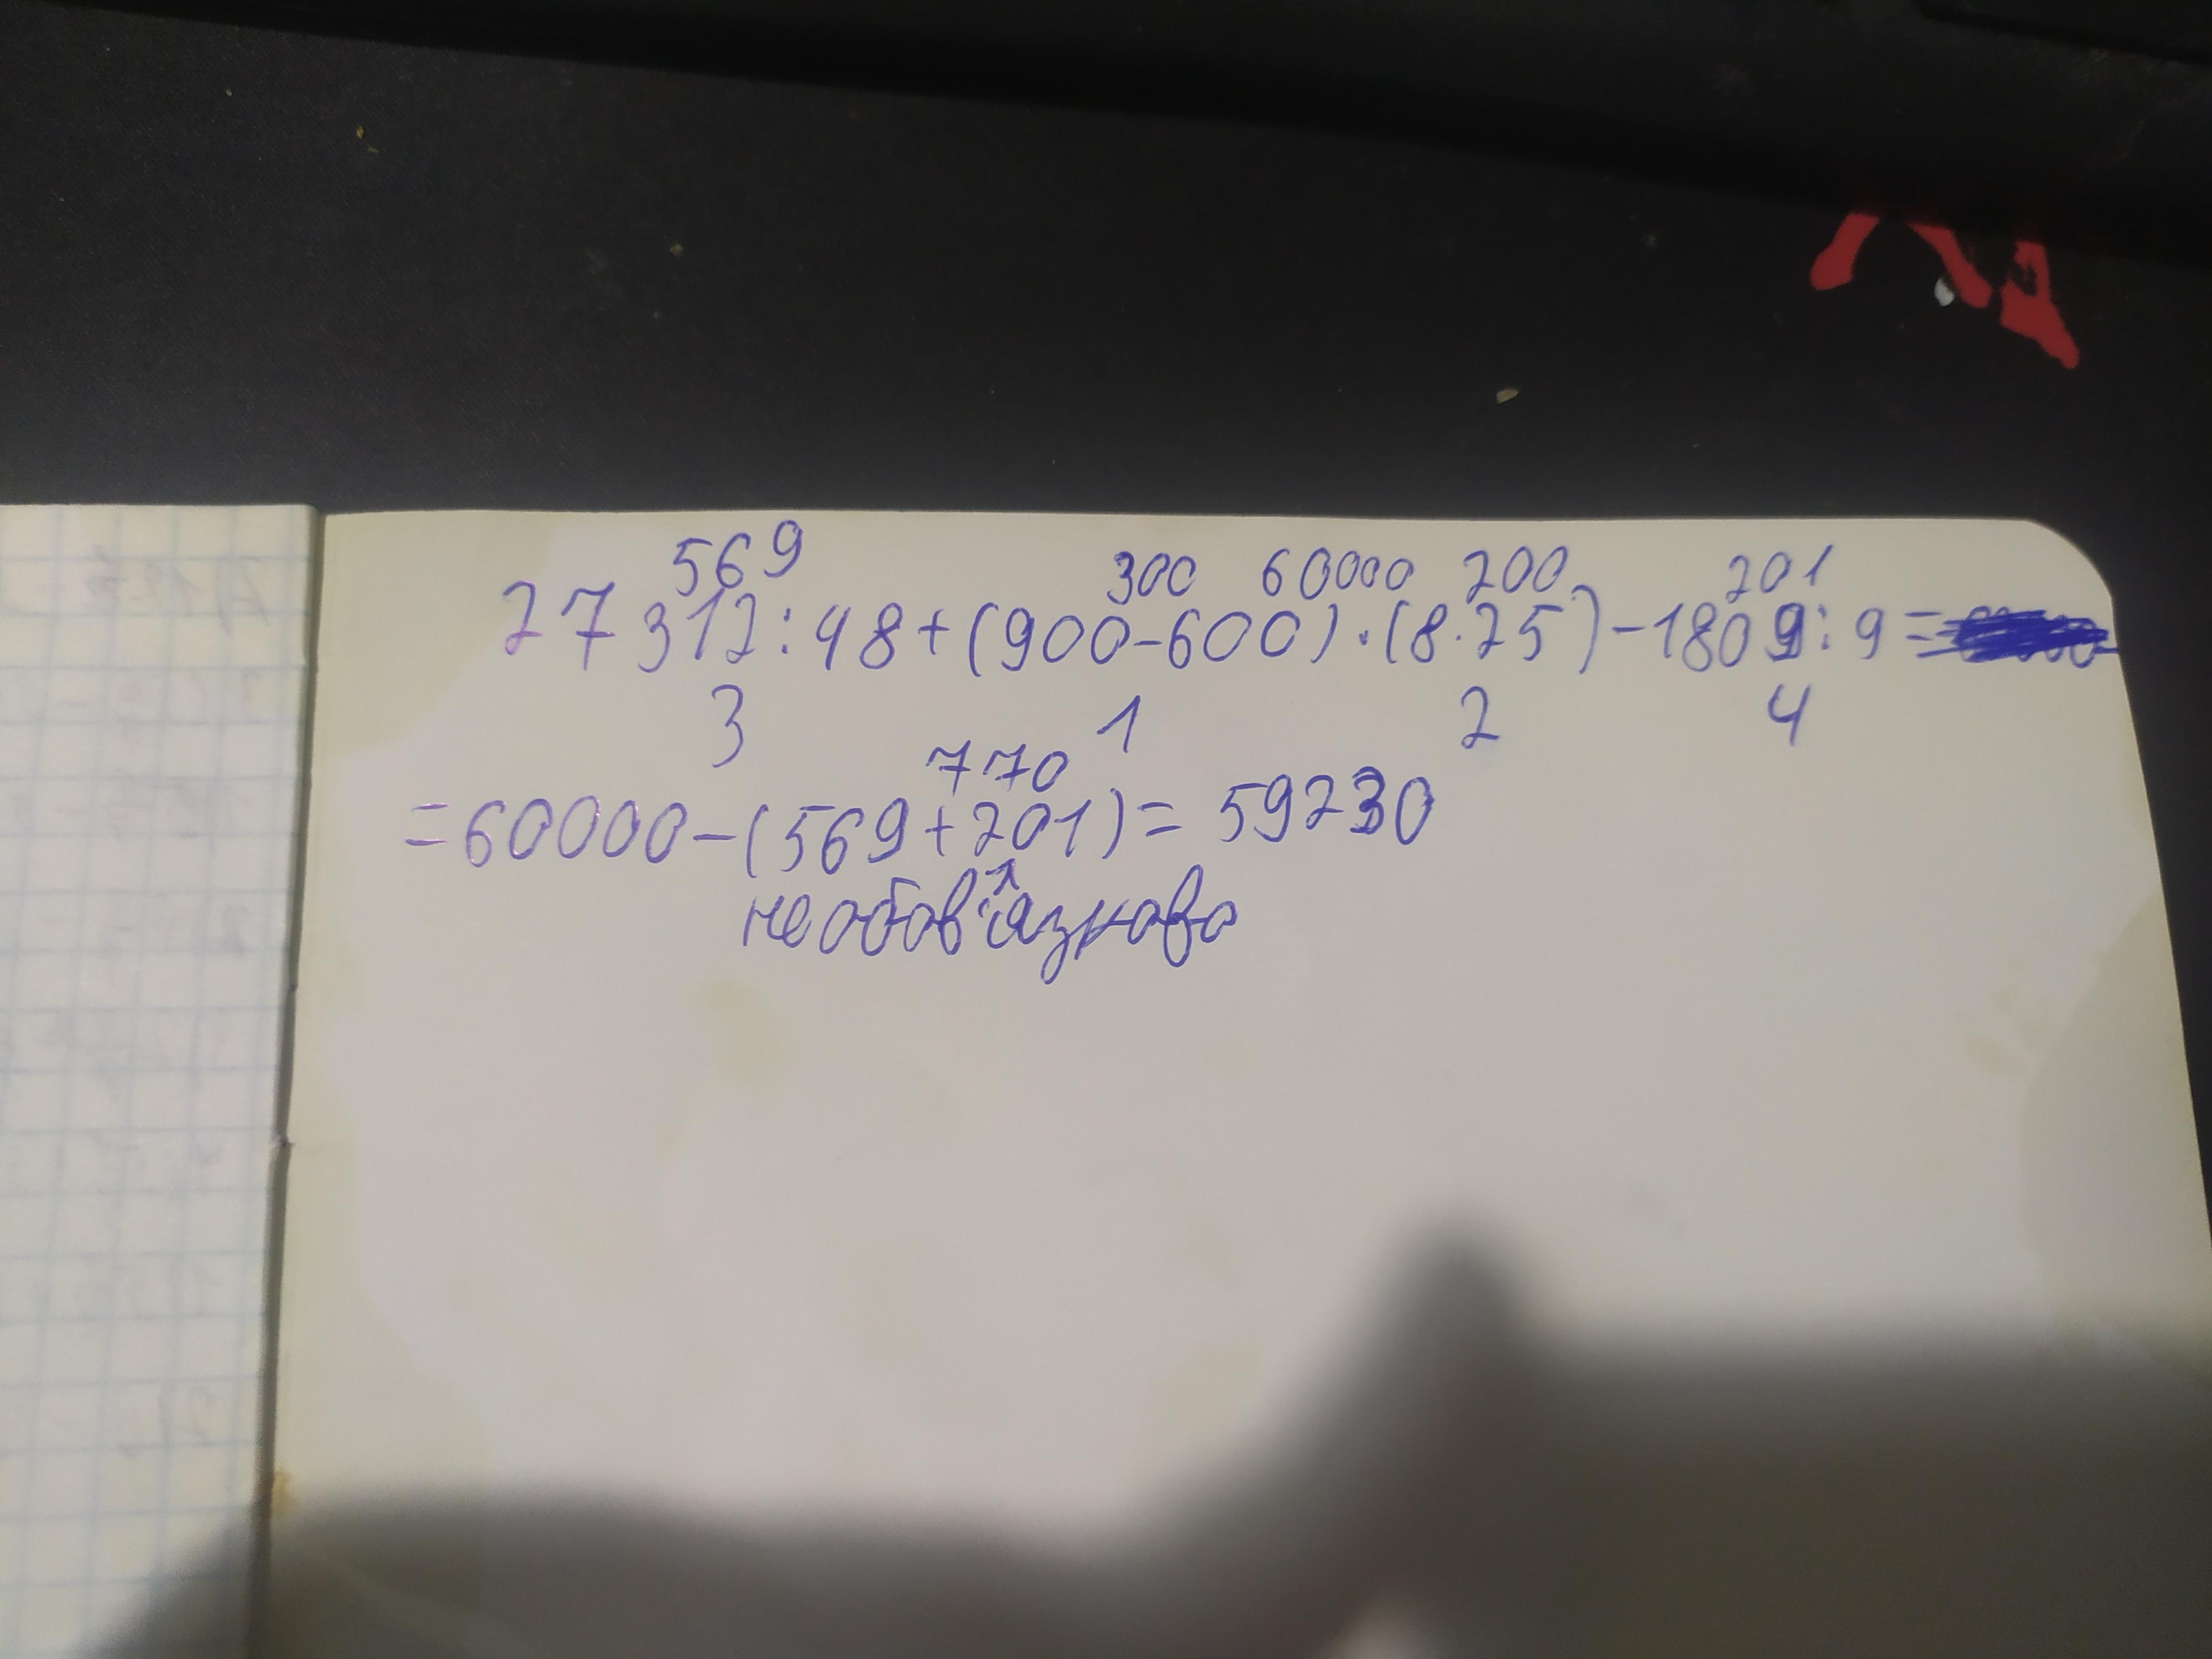 569 300 60000 200 201
27312:48+(900-600)·(8·25)-1809:9=
3 1 2 4
770
=60000-(569+201)=59230
необов'язково